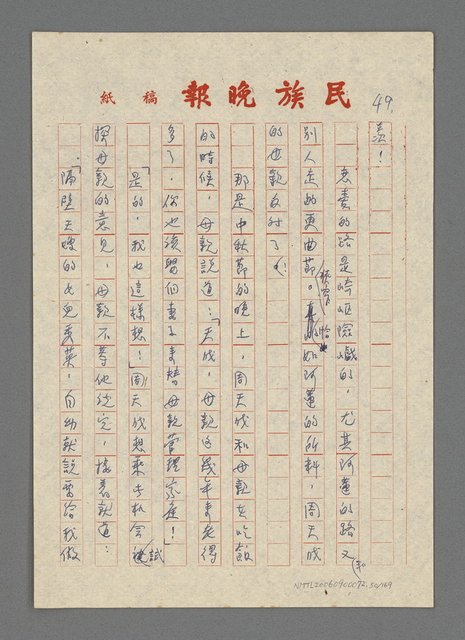 民族晚報 稿紙
49.
素!
戀愛的路是崎嶇險巇的，尤其阿蓮的路又(和)
別人走的更曲節。恰如阿蓮的所料，周天成
的母親反對了。
那是中秋節的晚上，周天成和母親在吃飯
的時候，母親說道：「天成，母親這幾年來老得
多了，你也該娶個妻子來替母親管理家庭！」
「是的，我也這樣想！」周天成想乘機會試
探母親的意見，母親不等他說完，接着就道：
「隔壁天賜的女兒秀英，自幼就說要給我做
NMTL20060900072.50/169